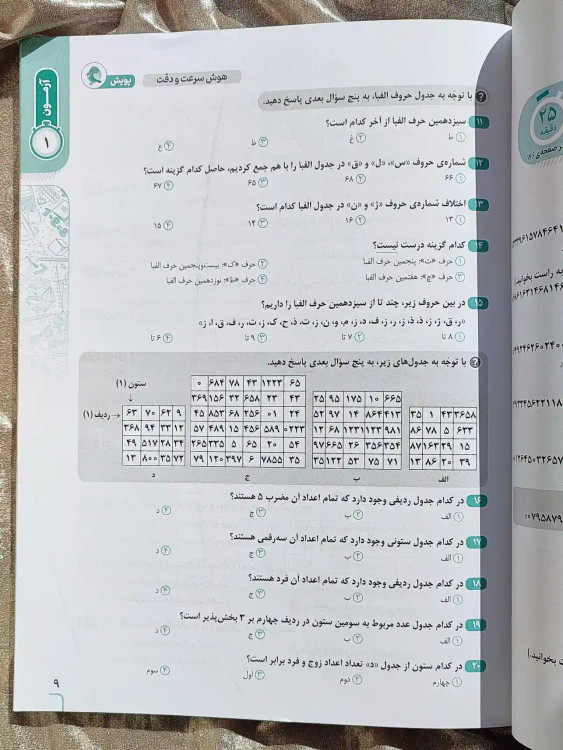 آزمـــون
۱
هوش سرعت و دقت
پویش
با توجّه به جدول حروف الفبا، به پنج سؤال بعدی پاسخ دهید.
۱۱ سیزدهمین حرف الفبا از آخر کدام است؟
۱) ط ۲) غ ۳) ظ ۴) ع
۱۲ شماره‌ی حروف «س»، «ل» و «ق» در جدول الفبا را با هم جمع کردیم، حاصل کدام گزینه است؟
۱) ۶۶ ۲) ۶۸ ۳) ۶۵ ۴) ۶۷
۱۳ اختلاف شماره‌ی حروف «ژ» و «ن» در جدول الفبا کدام است؟
۱) ۱۳ ۲) ۱۶ ۳) ۱۴ ۴) ۱۵
۱۴ کدام گزینه درست نیست؟
۱) حرف «ث»: پنجمین حرف الفبا ۲) حرف «ک»: بیست‌وپنجمین حرف الفبا
۳) حرف «چ»: هفتمین حرف الفبا ۴) حرف «ظ»: نوزدهمین حرف الفبا
۱۵ در بین حروف زیر، چند تا از سیزدهمین حرف الفبا را داریم؟
۱) ۸ تا ۲) ۷ تا ۳) ۹ تا ۴) ۶ تا
با توجّه به جدول‌های زیر، به پنج سؤال بعدی پاسخ دهید.
ستون (۱)
ردیف (۱)
۶۳ ۷۰ ۶۲ ۹
۳۶۸ ۹۴ ۳۳ ۱۲
۴۹ ۵۱۷ ۲۸ ۳۴
۱۳ ۸۰۰ ۳۵ ۷۲
د
۰ ۶۸۴ ۷۸ ۴۳ ۱۲۲۳ ۶۵
۳۶۹ ۱۵۶ ۳۲ ۶۵۸ ۲۳ ۴۳
۴۵ ۸۵۳ ۶۸ ۲۵۶ ۰۱ ۲۴
۵۷ ۴۸۹ ۱۵ ۴۵۶ ۵۸۹ ۰۲۲۳
۲۶۵ ۳۳۵ ۵ ۶۵ ۲۰ ۵۴
۷۹ ۱۲۰ ۳۹۷ ۶ ۷۸۵۵ ۳۵
ج
۲۵ ۹۵ ۱۷۵ ۱۰ ۶۶۵
۵۲ ۹۷ ۱۴ ۸۶۴ ۴۱۳
۱۳ ۶۸ ۱۲۳ ۱۲۳ ۹۸۱
۹۷ ۶۶۵ ۲۶ ۳۵۶ ۳۵۴
۳۵ ۱۲۲ ۵۳ ۷۵ ۷۱
ب
۳۵ ۱ ۴۳ ۳۶۵۸
۸۶ ۷۸ ۵ ۶۳۳
۸۷ ۱۶۳ ۲۹ ۱۵
۱۳ ۸۶ ۲۰ ۳۹
الف
۱۶ در کدام جدول ردیفی وجود دارد که تمام اعداد آن مضرب ۵ هستند؟
۱) الف ۲) ب ۳) ج ۴) د
۱۷ در کدام جدول ستونی وجود دارد که تمام اعداد آن سه‌رقمی هستند؟
۱) الف ۲) ب ۳) ج ۴) د
۱۸ در کدام جدول ردیفی وجود دارد که تمام اعداد آن فرد هستند؟
۱) الف ۲) ب ۳) ج ۴) د
۱۹ در کدام جدول عدد مربوط به سومین ستون در ردیف چهارم بر ۳ بخش‌پذیر است؟
۱) الف ۲) ب ۳) ج ۴) د
۲۰ در کدام ستون از جدول «د» تعداد اعداد زوج و فرد برابر است؟
۱) چهارم ۲) دوم ۳) اول ۴) سوم
۹
۲۵
دقیقه